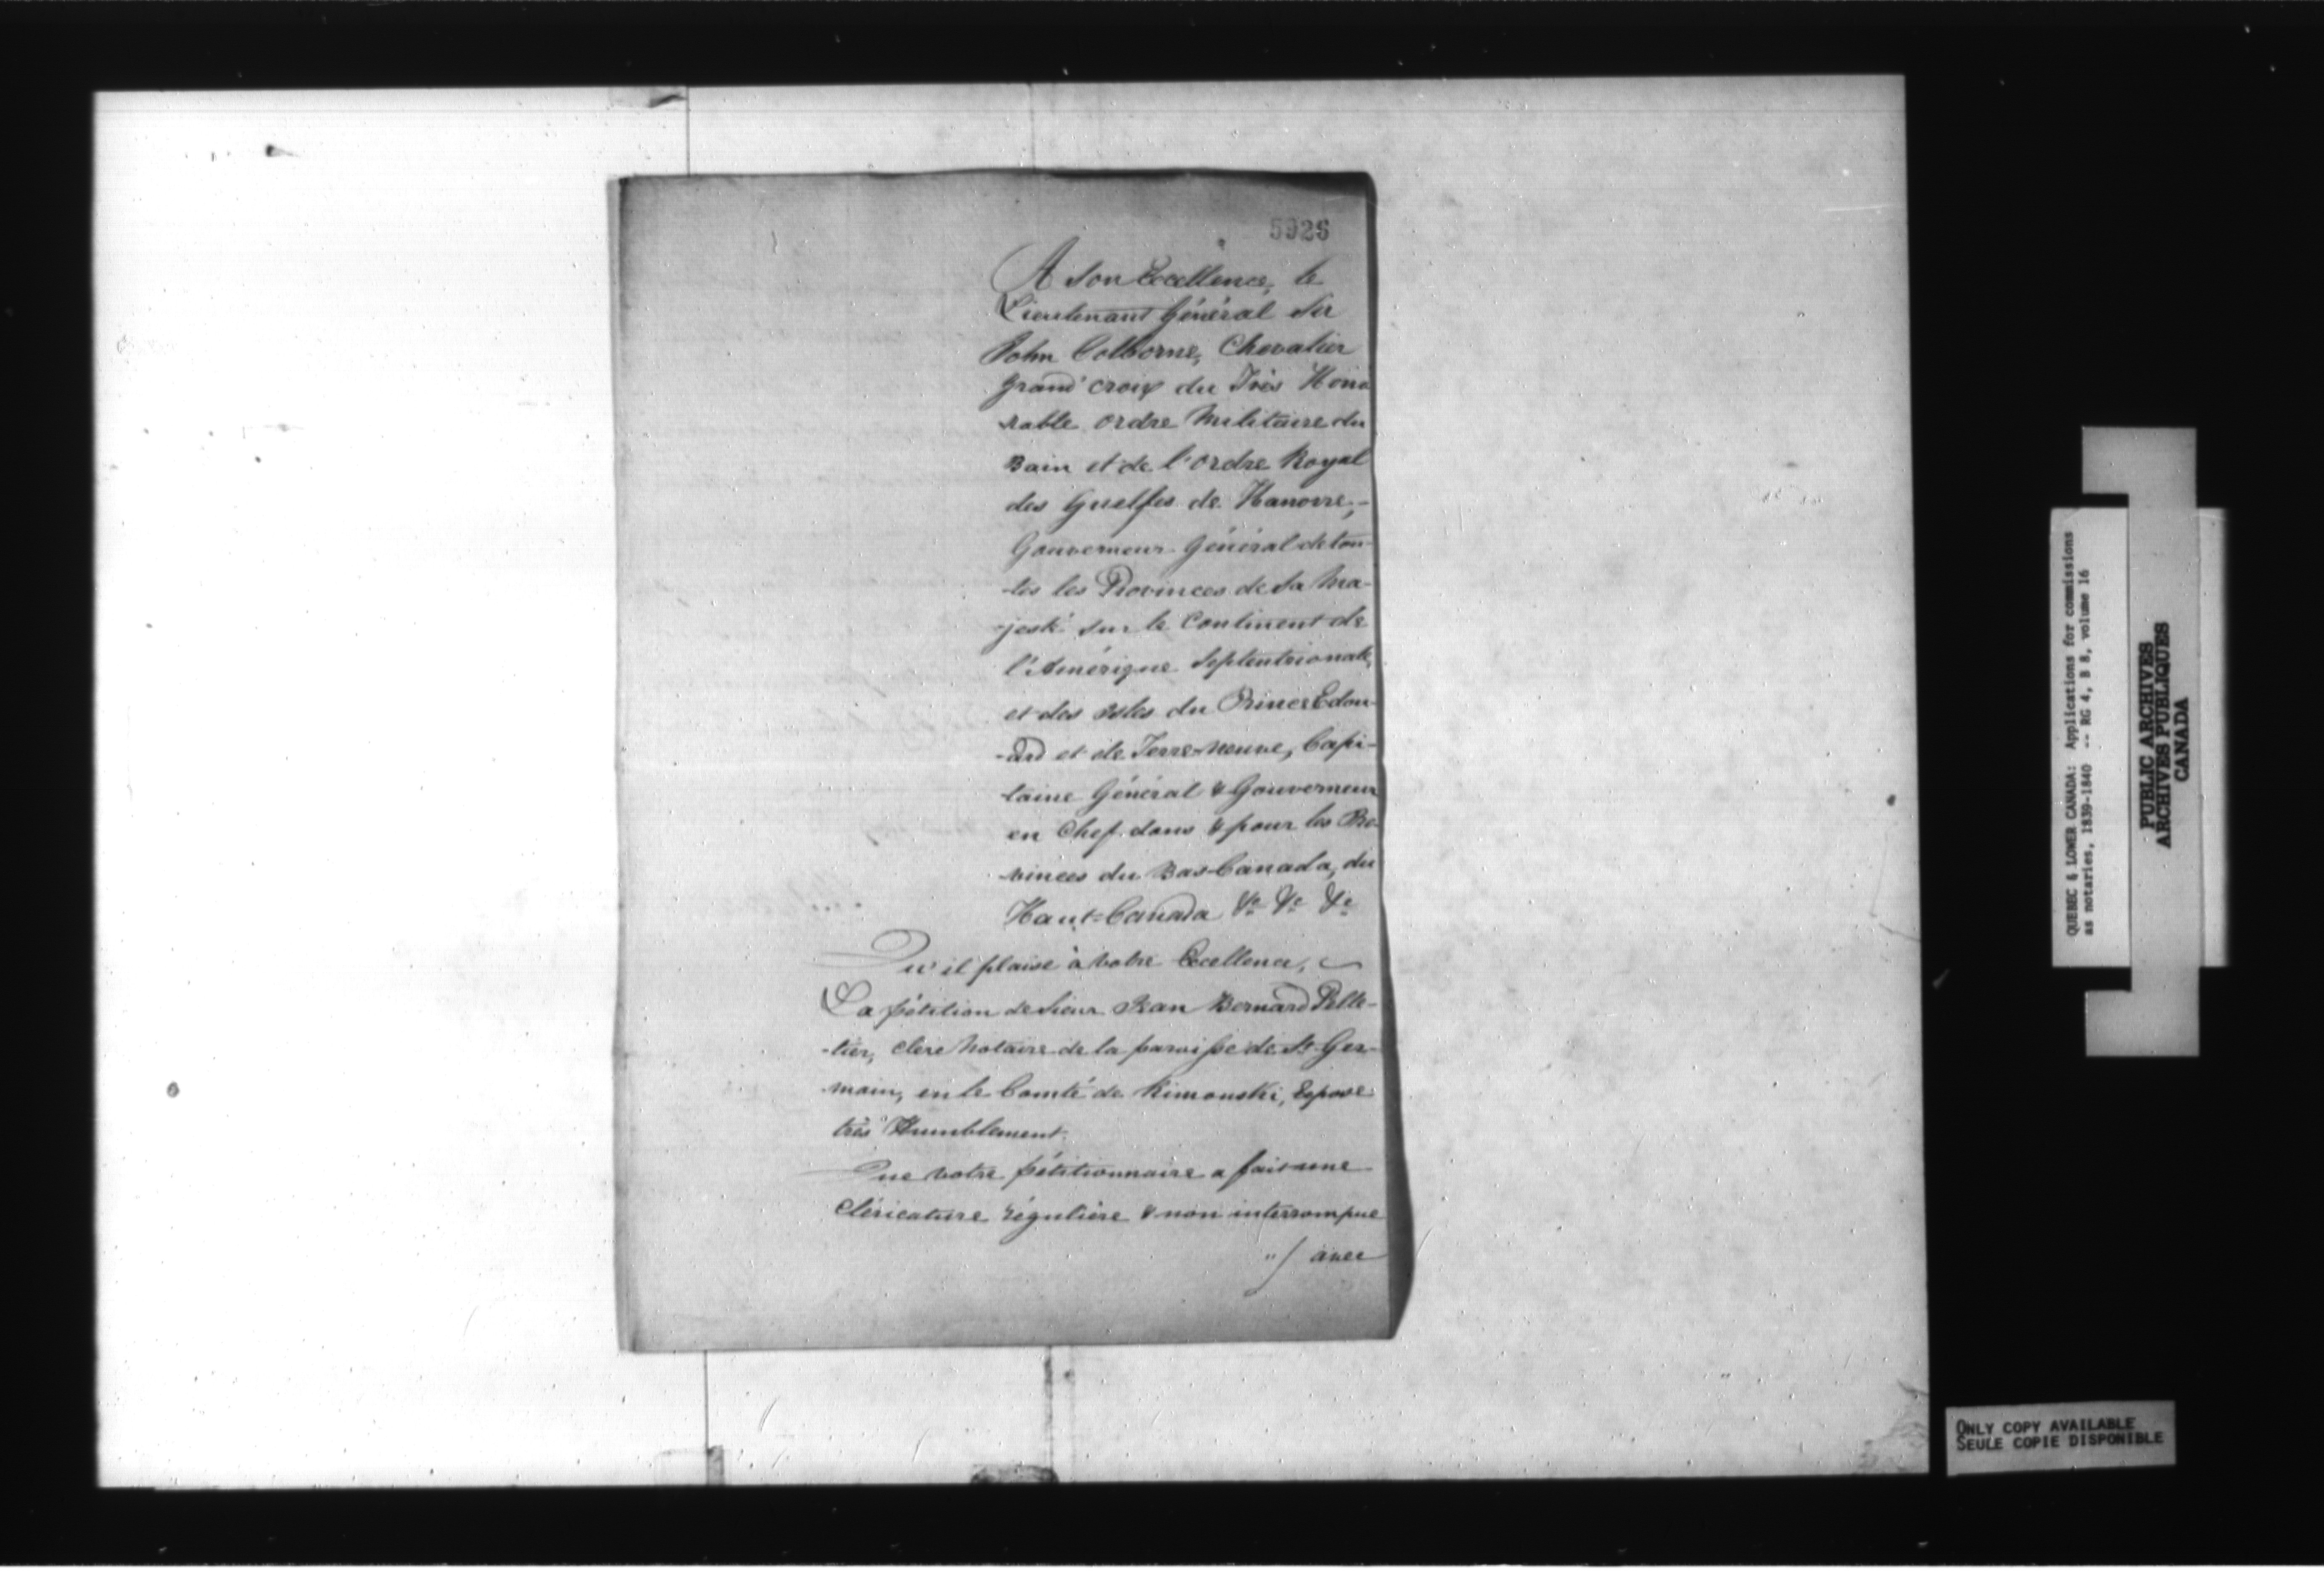 5926
A Son Excellence, le
Lieutenant Général Sir
John Colborne, Chevalier
grand croix du Très Hono
rable ordre Militaire du
Bain et de l'ordre Royal
des Guelfes de Hanovre,-
Gouverneur Général de tou-
-tes les Provinces de Sa Ma-
-jesté sur le Continent de
l'Amérique Septentrionale,
et des isles du Prince Edou-
-ard et de Terre-neuve, Capi-
taine Général & Gouverneur
en Chef dans & pour les Pro-
-vinces du Bas-Canada, du
Haut=Canada &c &c &c
Qu'il plaise à votre Excellence,
La pétition de Sieur Jean Bernard Pelle-
-tier, clerc Notaire de la paroisse de St Ger-
-main, en le Comté de Rimouski, Expose
très Humblement.
Que votre pétitionnaire a fait une
Cléricature régulière & non interrompue
"/ avec
QUEBEC & LOWER CANADA: Applications for commissions
as notaries, 1839-1840 -- RG 4, B 8, volume 16
PUBLIC ARCHIVES
ARCHIVES PUBLIQUES
CANADA
ONLY COPY AVAILABLE
SEULE COPIE DISPONIBLE